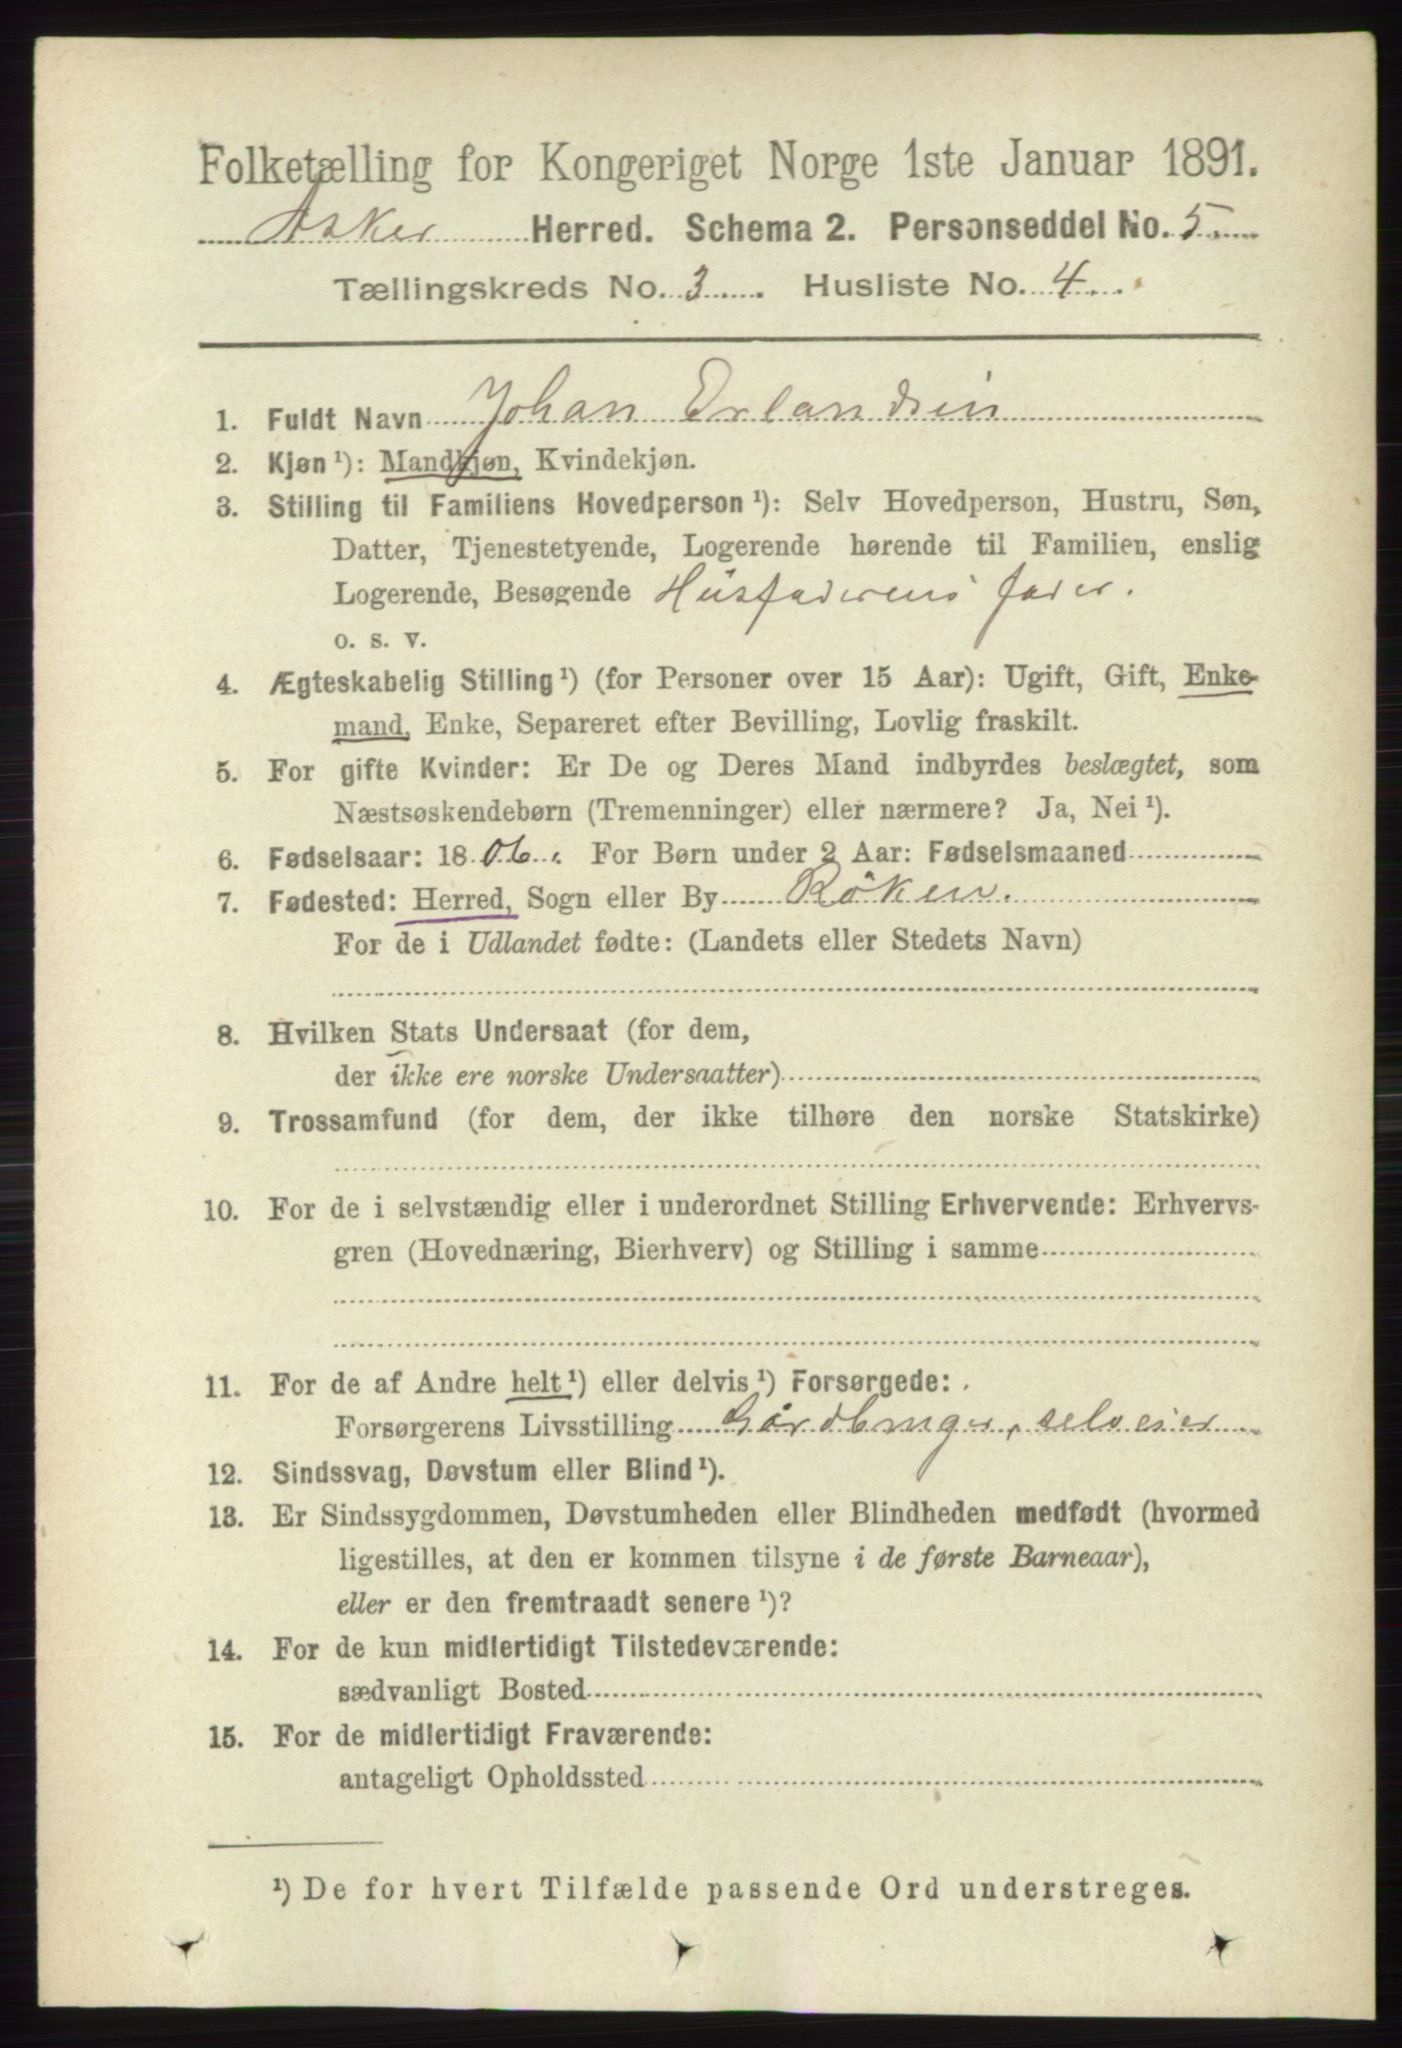 Folketælling for Kongeriget Norge 1ste Januar 1891.
Asker Herred. Schema 2. Personseddel No. 5.
Tællingskreds No. 3. Husliste No. 4.
1. Fuldt Navn Johan Erlandsen
2. Kjøn ¹): Mandkjøn, Kvindekjøn.
3. Stilling til Familiens Hovedperson ¹): Selv Hovedperson, Hustru, Søn,
Datter, Tjenestetyende, Logerende hørende til Familien, enslig
Logerende, Besøgende Husfaderens fader.
o. s. v.
4. Ægteskabelig Stilling ¹) (for Personer over 15 Aar): Ugift, Gift, Enke-
mand, Enke, Separeret efter Bevilling, Lovlig fraskilt.
5. For gifte Kvinder: Er De og Deres Mand indbyrdes beslægtet, som
Næstsøskendebørn (Tremenninger) eller nærmere? Ja, Nei ¹).
6. Fødselsaar: 1806. For Børn under 2 Aar: Fødselsmaaned
7. Fødested: Herred, Sogn eller By Röken.
For de i Udlandet fødte: (Landets eller Stedets Navn)
8. Hvilken Stats Undersaat (for dem,
der ikke ere norske Undersaatter)
9. Trossamfund (for dem, der ikke tilhøre den norske Statskirke)
10. For de i selvstændig eller i underordnet Stilling Erhvervende: Erhvervs-
gren (Hovednæring, Bierhverv) og Stilling i samme
11. For de af Andre helt ¹) eller delvis ¹) Forsørgede:
Forsørgerens Livsstilling Gårdbruger, selveier
12. Sindssvag, Døvstum eller Blind ¹).
13. Er Sindssygdommen, Døvstumheden eller Blindheden medfødt (hvormed
ligestilles, at den er kommen tilsyne i de første Barneaar),
eller er den fremtraadt senere ¹)?
14. For de kun midlertidigt Tilstedeværende:
sædvanligt Bosted
15. For de midlertidigt Fraværende:
antageligt Opholdssted
¹) De for hvert Tilfælde passende Ord understreges.